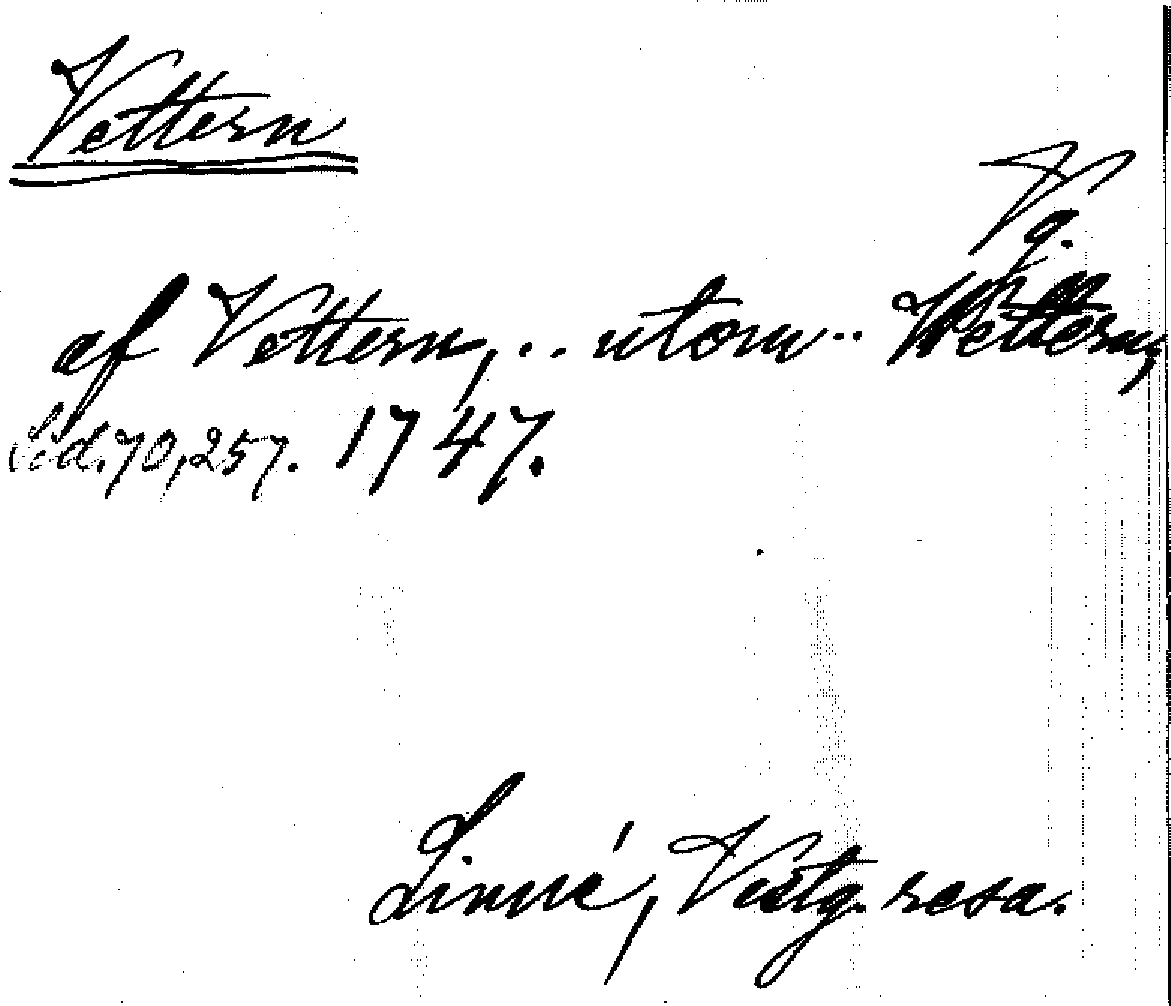 Vettern
Vg.
af Vettern, .. utom .. Wettern,
Sid. 70, 257. 1747.
Linné, Vestg. resa.